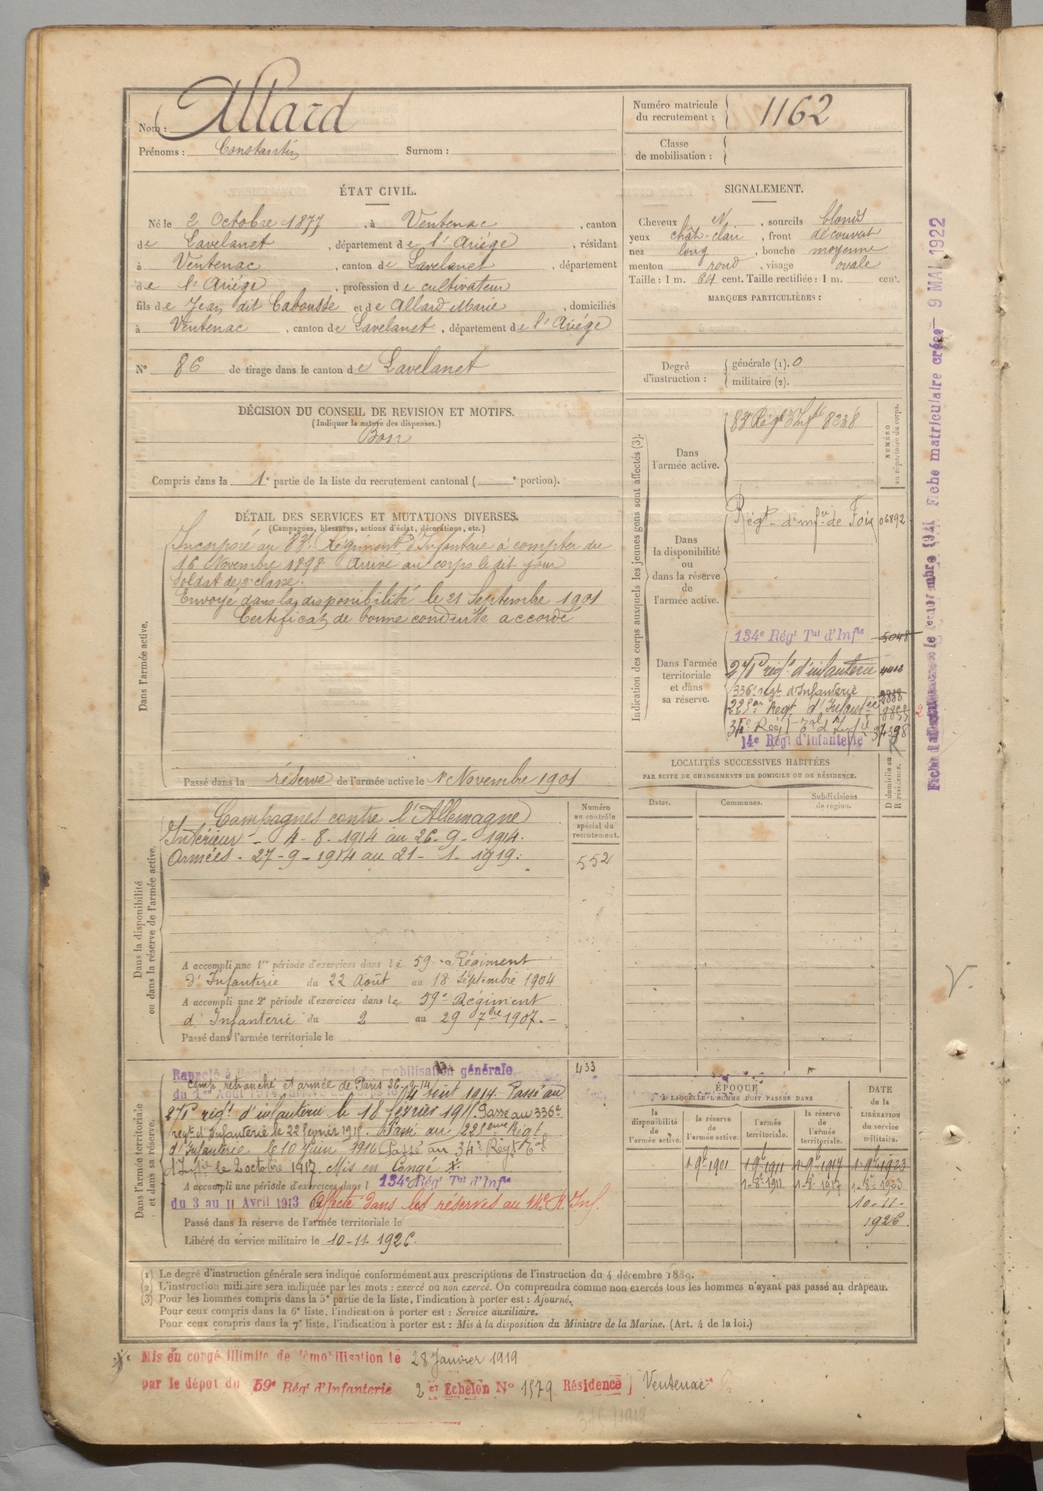 Nom : Allard
Prénoms : Constantin Surnom :
Numéro matricule du recrutement : 1162
Classe de mobilisation :
ÉTAT CIVIL.
Né le 2 Octobre 1877, à Ventenac, canton
de Lavelanet, département de l'Ariége, résidant
à Ventenac, canton de Lavelanet, département
de l'Ariége, profession de cultivateur
fils de Jean dit Cabousse et de Allard Marie, domiciliés
à Ventenac, canton de Lavelanet, département de l'Ariége
N° 86 de tirage dans le canton de Lavelanet
SIGNALEMENT.
Cheveux N, sourcils blonds
yeux chât-clair, front découvert
nez long, bouche moyenne
menton rond, visage ovale
Taille : 1 m. 64 cent. Taille rectifiée : 1 m. cent.
MARQUES PARTICULIÈRES :
Degré d'instruction : générale (1). 0
militaire (2).
DÉCISION DU CONSEIL DE REVISION ET MOTIFS.
(Indiquer la nature des dispenses.)
Bon
Compris dans la 1e partie de la liste du recrutement cantonal ( e portion).
DÉTAIL DES SERVICES ET MUTATIONS DIVERSES.
(Campagnes, blessures, actions d'éclat, décorations, etc.)
Dans l'armée active.
Incorporé au 83e Régiment d'Infanterie à compter du
16 Novembre 1898 Arrivé au corps le dit jour
Soldat de 2e classe.
Envoyé dans la disponibilité le 21 Septembre 1901
Certificat de bonne conduite accordé
Passé dans la réserve de l'armée active le 1er Novembre 1901
Indication des corps auxquels les jeunes gens sont affectés (3).
NUMÉRO au répertoire du corps.
Dans l'armée active.
83e Régt d'Infie 8238
Dans la disponibilité ou dans la réserve de l'armée active.
Régt d'infie de Foix 06892
Dans l'armée territoriale et dans sa réserve.
134e Régt Tal d'Infie 5048
271e régt d'infanterie
336e régt d'Infanterie
228eme Régt d'Infanterie
34e Régt
14e Régt d'Infanterie
LOCALITÉS SUCCESSIVES HABITÉES
PAR SUITE DE CHANGEMENTS DE DOMICILE OU DE RÉSIDENCE.
Dates. Communes. Subdivisions de région. D domicile ou R résidence.
Dans la disponibilité ou dans la réserve de l'armée active.
Numéro au contrôle spécial du recrutement.
552
Campagnes contre l'Allemagne
Intérieur - 4-8-1914 au 26-9-1914.
Armées - 27-9-1914 au 21-1-1919.
A accompli une 1re période d'exercices dans le 59e Régiment
d'Infanterie du 22 Août au 18 Septembre 1904
A accompli une 2e période d'exercices dans le 59e Régiment
d'Infanterie du 2 au 29 7bre 1907.-
Passé dans l'armée territoriale le
Dans l'armée territoriale et dans sa réserve.
433
Rappelé mobilisation générale
camp retranché et armée de Paris 26-9-14
du 1er Août 1914 4 aout 1914. Passé au
271e régt d'infanterie le 18 février 1915 Passé au 336e
régt d'Infanterie le 28 février 1915. Passé au 228eme Régt
d'Infanterie le 10 Juin 1916 Passé au 34e Régt Tal
d'Infie le 2 octobre 1917. Mis en Congé
A accompli une période d'exercices dans l 134e Régt Tal d'Infie
du 3 au 11 Avril 1913 Affecté dans les réserves au 14e R. Inf.
Passé dans la réserve de l'armée territoriale le
Libéré du service militaire le 10-11-1926.
ÉPOQUE
À LAQUELLE L'HOMME DOIT PASSER DANS
la disponibilité de l'armée active. la réserve de l'armée active. l'armée territoriale. la réserve de l'armée territoriale.
DATE de la LIBÉRATION du service militaire.
1-9bre 1901 1-9bre 1911 1-9bre 1917 1-9bre 1923
10-11-1926.
(1) Le degré d'instruction générale sera indiqué conformément aux prescriptions de l'instruction du 4 décembre 1889.
(2) L'instruction militaire sera indiquée par les mots : exercé ou non exercé. On comprendra comme non exercés tous les hommes n'ayant pas passé au drapeau.
(3) Pour les hommes compris dans la 5e partie de la liste, l'indication à porter est : Ajourné.
Pour ceux compris dans la 6e liste, l'indication à porter est : Service auxiliaire.
Pour ceux compris dans la 7e liste, l'indication à porter est : Mis à la disposition du Ministre de la Marine. (Art. 4 de la loi.)
Mis en congé illimité de démobilisation le 28 Janvier 1919
par le dépot du 59e Régt d'Infanterie 2 et Echelon N° 1579 Résidence Ventenac
Fiche matriculaire créée - 9 MAI 1922
V.